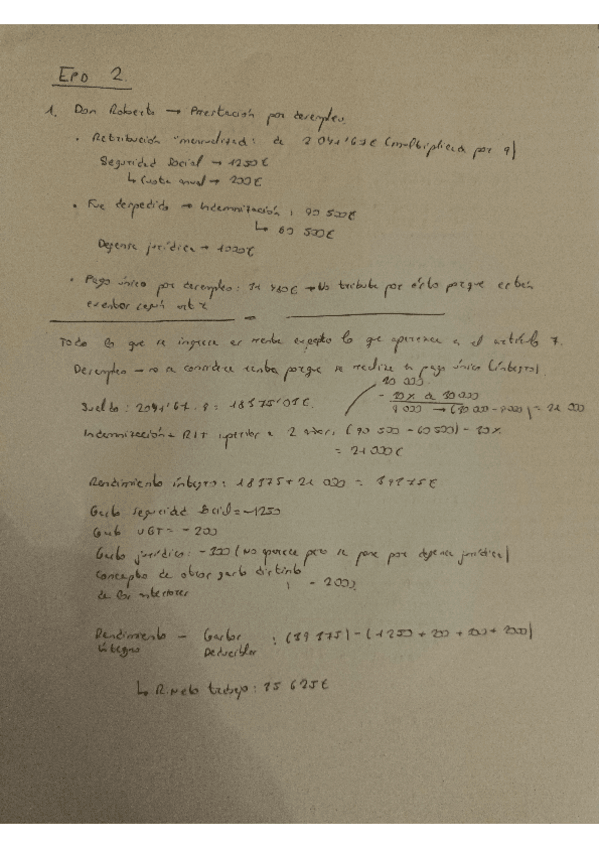 EPD 2
1. Don Roberto → Prestación por desempleo.
• Retribución "mensualizada": de 2 041'67 € (multiplicada por 9)
Seguridad Social → 1250 €
↳ Cuota anual → 200 €
• Fue despedido → Indemnización: 90 500 €
↳ 60 500 €
Defensa jurídica → 1000 €
• Pago único por desempleo: → No tributa por ésto porque están
exentos según art 7
Todo lo que se ingresa es renta excepto lo que aparezca en el artículo 7.
Desempleo → no a considera renta porque se realiza en pago único (íntegro).
30 000
- 30% de 30 000
9 000 → (30 000 - 9000) = 21 000
Sueldo: 2041'67 · 9 = 18375'03 €.
Indemnización → RIT superior a 2 años: (90 500 - 60 500) - 30%
= 21 000 €
Rendimiento íntegro: 18 375 + 21 000 = 39 375 €
Gasto seguridad social = -1250
Gasto UGT = - 200
Gasto jurídico: - 300 (No aparece pero se pone por defensa jurídica)
Concepto de otros gasto distinto
de los anteriores : - 2000
Rendimiento íntegro - Gastos Deducibles : (39 375) - (1250 + 200 + 300 + 2000)
↳ R. Neto trabajo: 35 625 €